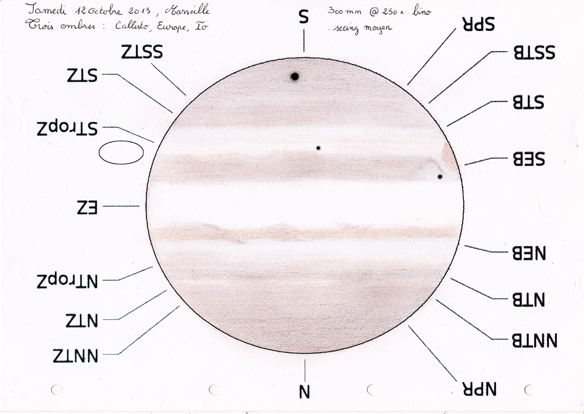 Samedi 12 Octobre 2013, Marseille
Trois ombres : Callisto, Europe, Io
300mm @ 250x bino
- seeing moyen
S
SPR
SSTZ
SSTB
STZ
STB
STropZ
SEB
EZ
NEB
NTropZ
NTB
NTZ
NNTB
NNTZ
N
NPR